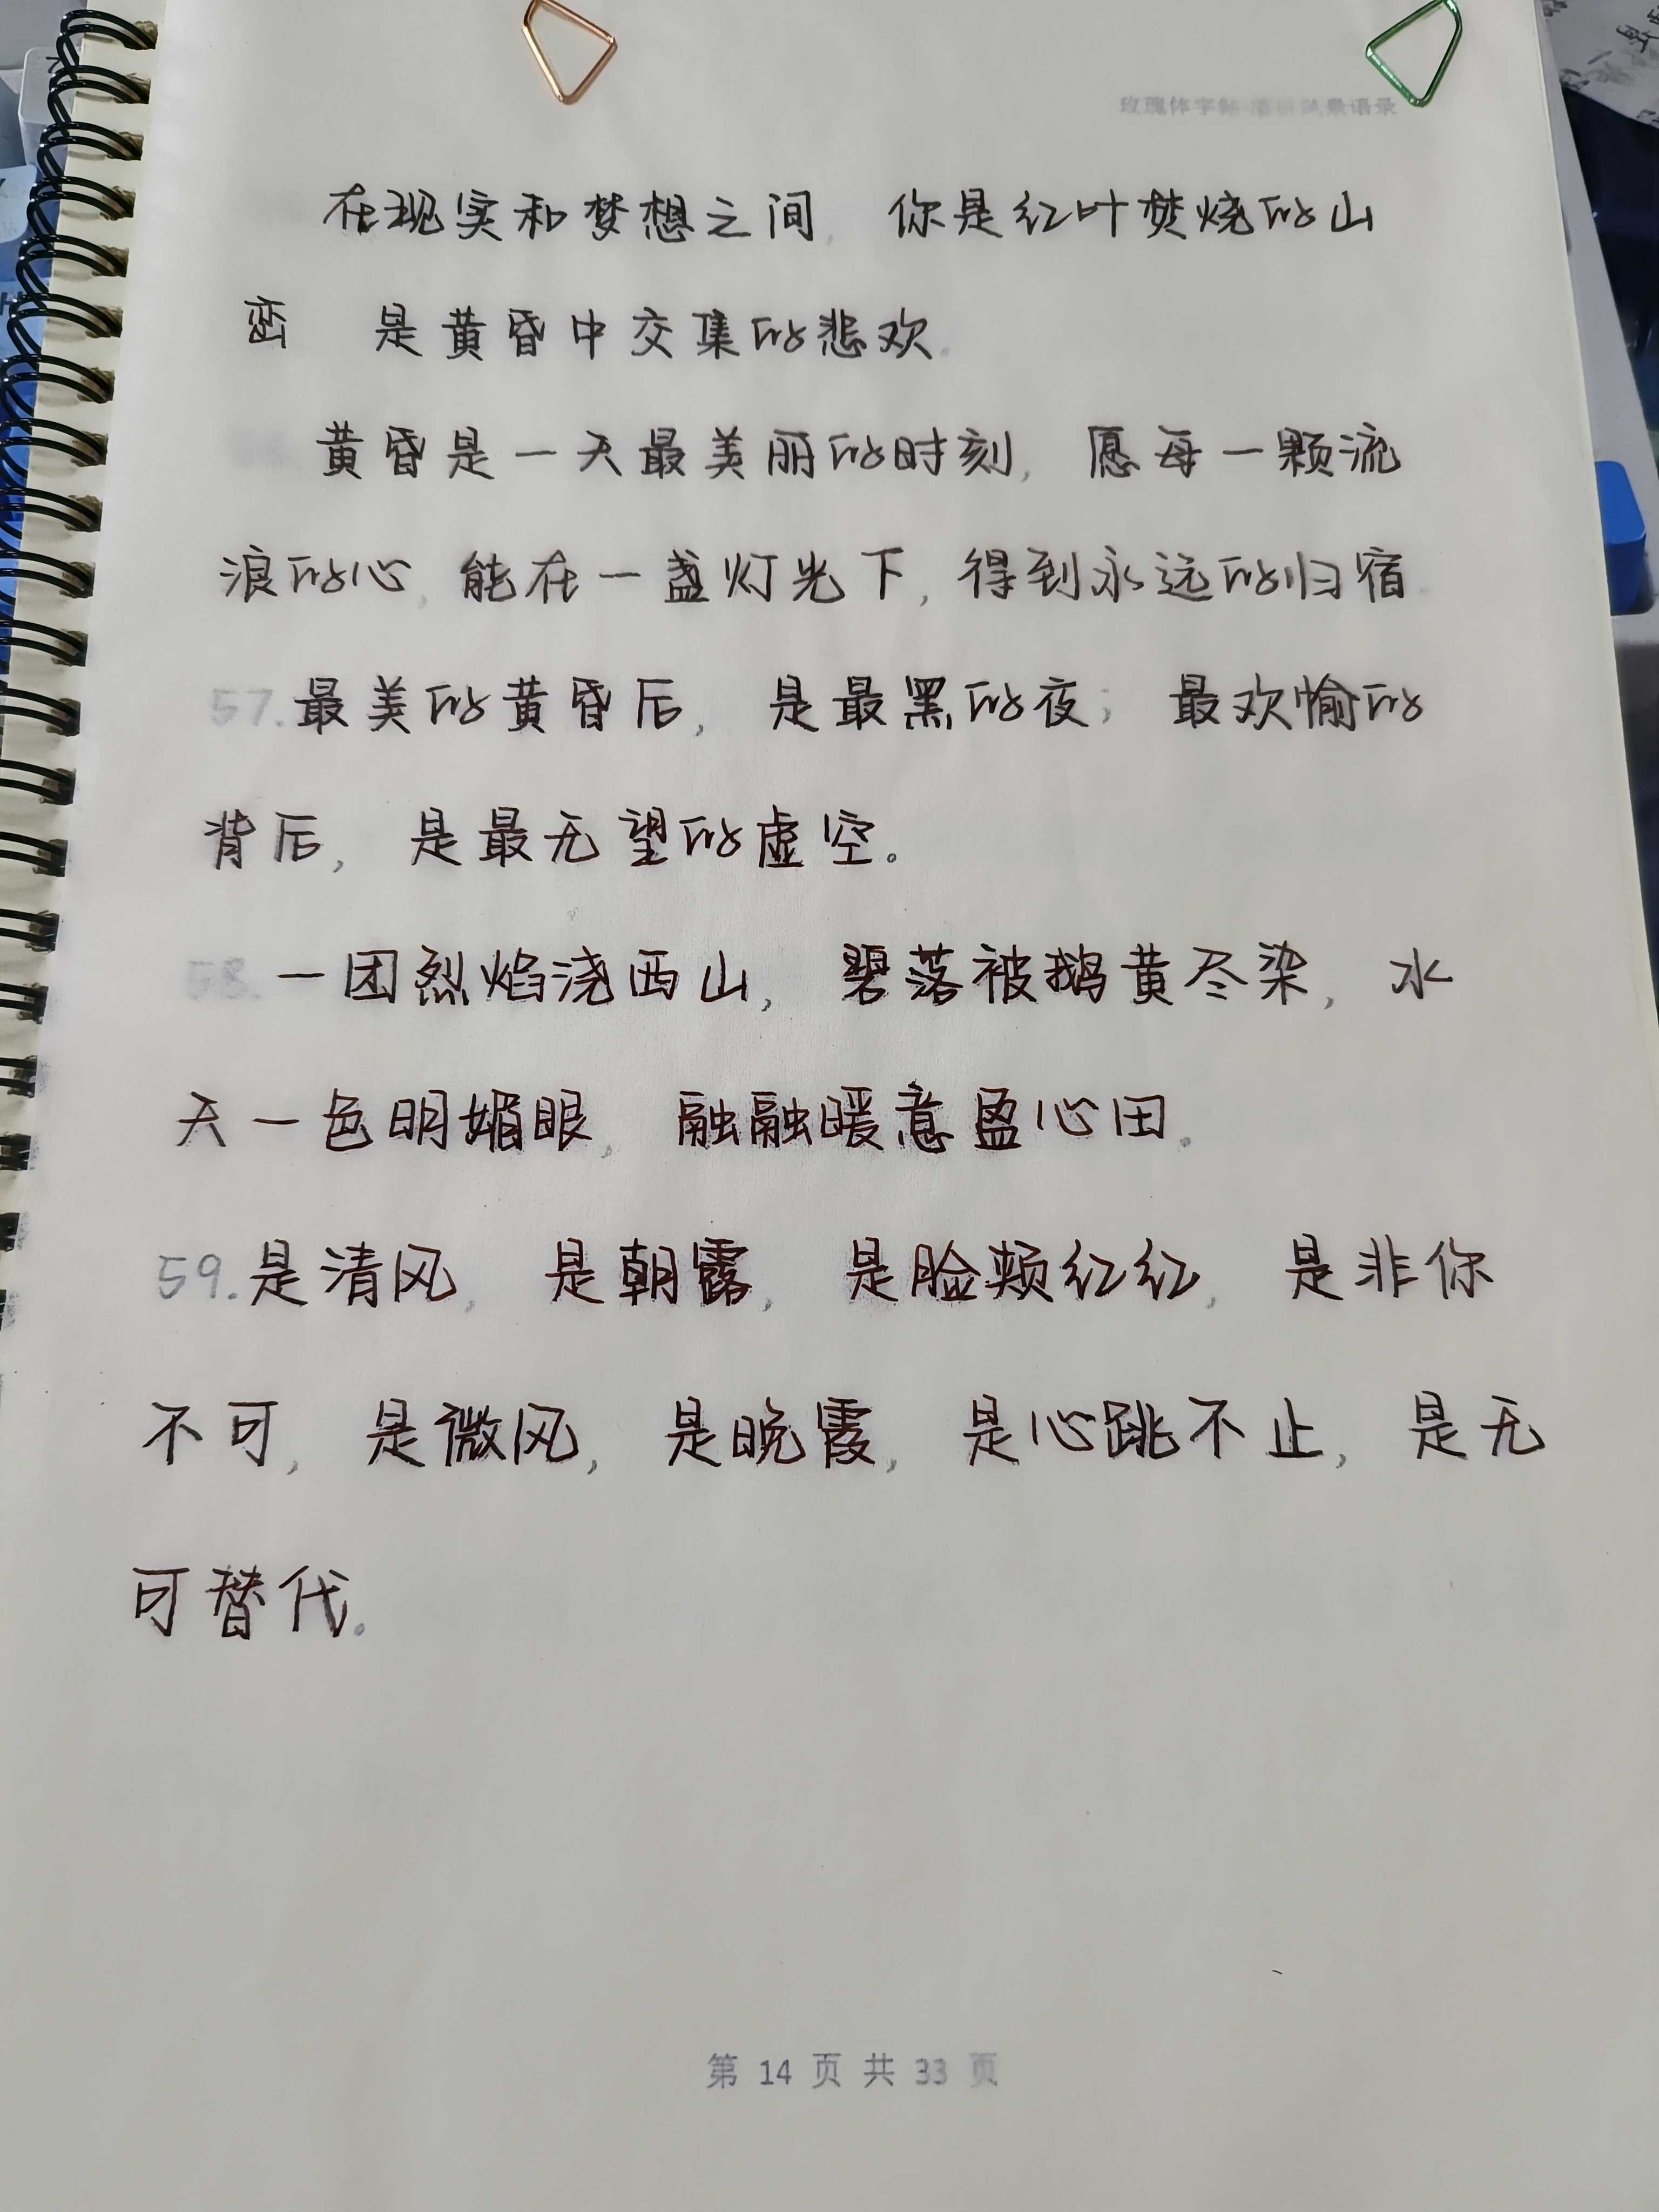 玫瑰体字帖
语录
在现实和梦想之间，你是红叶焚烧的山
峦 是黄昏中交集的悲欢.
黄昏是一天最美丽的时刻，愿每一颗流
浪的心，能在一盏灯光下，得到永远的归宿.
57.最美的黄昏后，是最黑的夜；最欢愉的
背后，是最无望的虚空。
58.一团烈焰浇西山，碧落被鹅黄尽染，水
天一色明媚眼，融融暖意盈心田。
59.是清风，是朝露，是脸颊红红，是非你
不可，是微风，是晚霞，是心跳不止，是无
可替代。
第 14 页 共 33 页